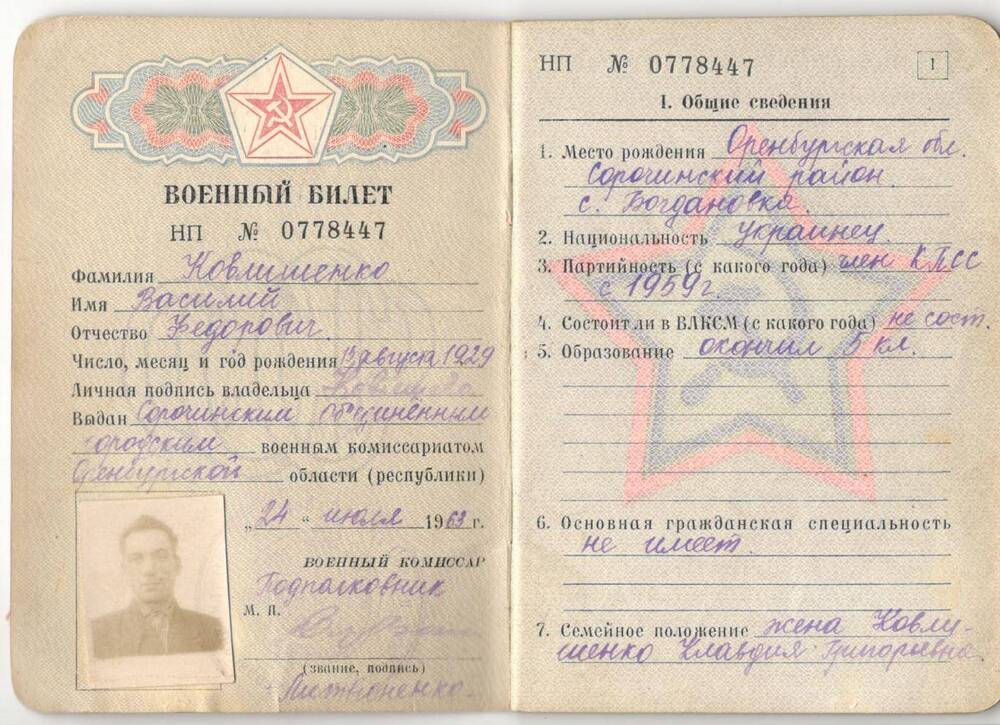 ВОЕННЫЙ БИЛЕТ
НП № 0778447
Фамилия Ковлишенко
Имя Василий
Отчество Федорович
Число, месяц и год рождения 13 августа 1929
Личная подпись владельца
Выдан Сорочинским объединённым
городским военным комиссариатом
Оренбургской области (республики)
„24“ июля 1963 г.
ВОЕННЫЙ КОМИССАР
Подполковник
М. П.
(звание, подпись)
НП № 0778447
1
I. Общие сведения
1. Место рождения Оренбургская обл.
Сорочинский район
с. Богдановка.
2. Национальность украинец.
3. Партийность (с какого года) член КПСС
с 1959 г.
4. Состоит ли в ВЛКСМ (с какого года) не сост.
5. Образование окончил 5 кл.
6. Основная гражданская специальность
не имеет.
7. Семейное положение жена Ковлу-
шенко Клавдия Григорьевна